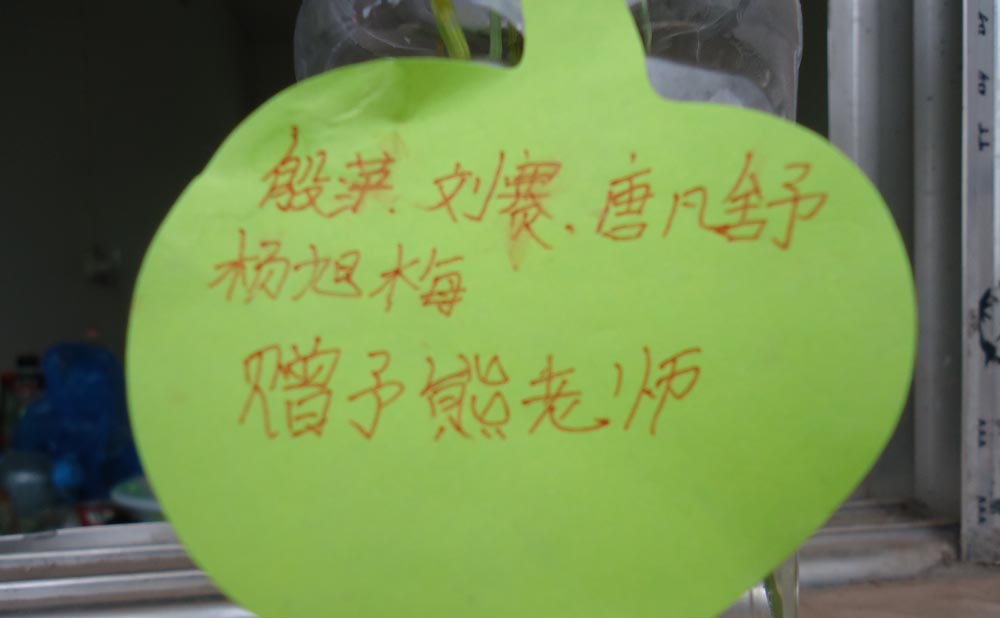 殷苹、刘赛、唐凡舒
杨旭梅
赠予熊老师